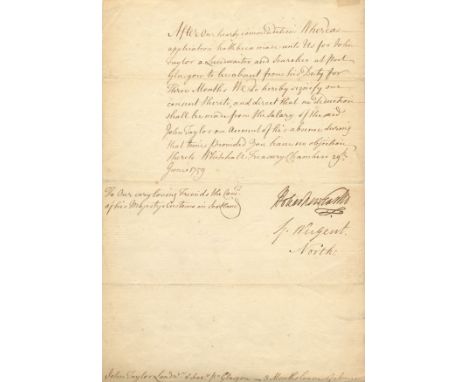 After Our hearty commendations Whereas
application hath been made unto Us for John
Taylor a Landwaiter and Searcher at Port
Glasgow to be absent from his Duty for
Three Months We do hereby signify our
consent thereto, and direct that no deduction
shall be made from the Salary of the said
John Taylor on Account of his absence during
that time, provided You have no objection
thereto Whitehall Treasury Chambers 29th
June 1759
To Our very loving Friends the Com.
of his Majestys Customs in Scotland
Holles Newcastle
J. Nugent.
North.
John Taylor Landwr & Sear. Pt Glasgow 3 Months leave